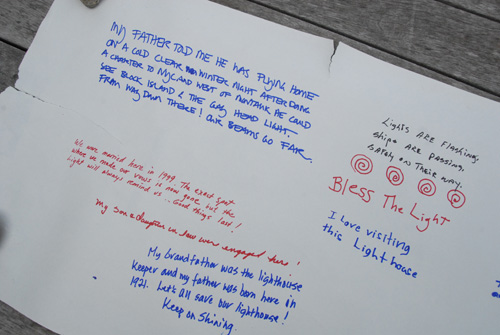 MY FATHER TOLD ME HE WAS FLYING HOME
ON A COLD CLEAR WINTER NIGHT AFTER DOING
A CHARTER TO NYC AND WEST OF MONTAUK HE COULD
SEE BLOCK ISLAND & THE GAY HEAD LIGHT.
FROM WAY DOWN THERE! OUR BEAMS GO FAR.
We were married here in 1999. The exact spot
where we made our vows is now gone but the
light will always remind us... Good things last!
My son & daughter in law were engaged here!
My Grandfather was the lighthouse
keeper and my father was born here in
1921. Let's all save our lighthouse!
Keep on Shining
Lights ARE FLASHING,
Ships ARE PASSING,
SAFELY ON THEIR WAY.
Bless The Light
I love visiting
this Lighthouse